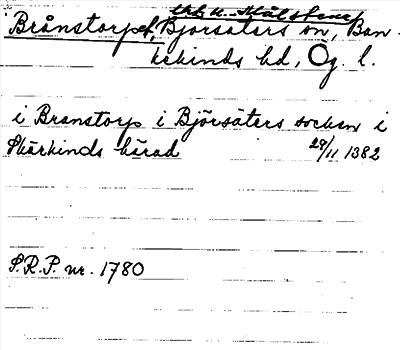 Brånstorp, Björsäters sn, Ban-
kekinds hd, Ög. l.
i Branstorp i Björsäters socken i
Skärkinds härad 29/11 1382
S.R.P. nr. 1780